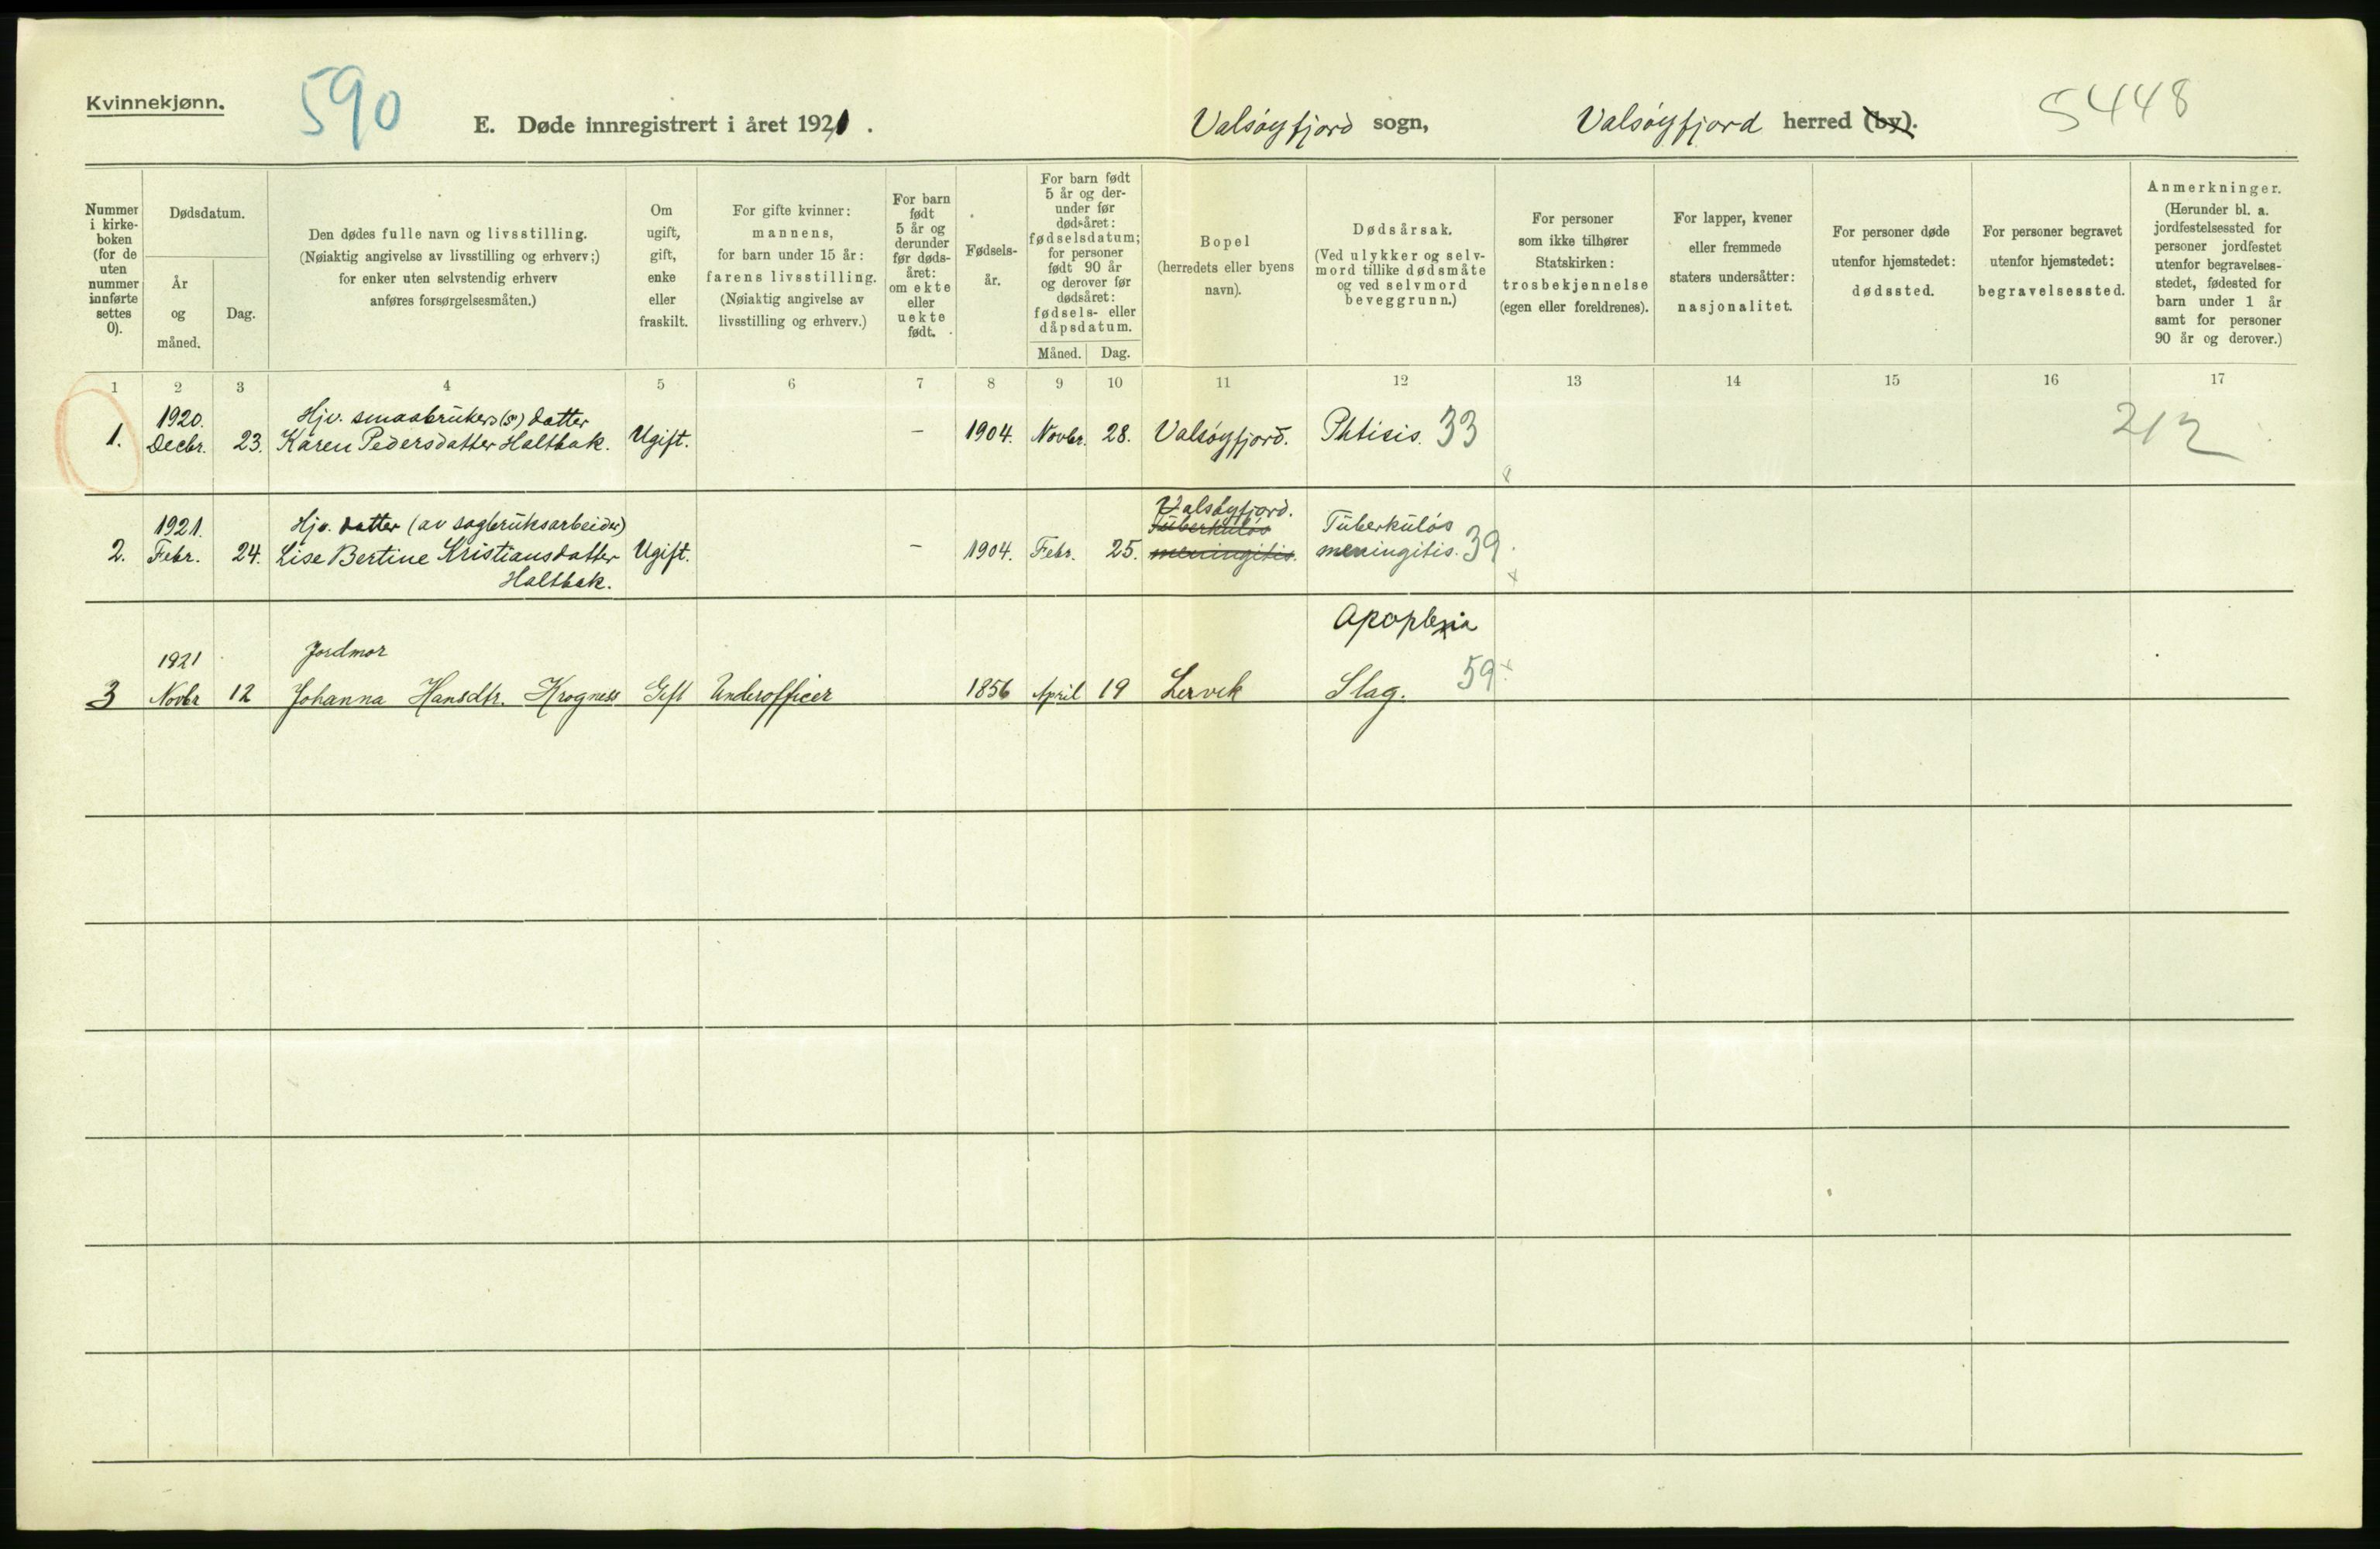 Kvinnekjønn.
590
E. Døde innregistrert i året 1921.
Valsøyfjord sogn,
Valsøyfjord herred (by).
5448
Nummer i kirkeboken (for de uten nummer innførte settes 0).
Dødsdatum.
År og måned.
Dag.
Den dødes fulle navn og livsstilling.
(Nøiaktig angivelse av livsstilling og erhverv;)
for enker uten selvstendig erhverv
anføres forsørgelsesmåten.)
Om ugift, gift, enke eller fraskilt.
For gifte kvinner:
mannens,
for barn under 15 år:
farens livsstilling.
(Nøiaktig angivelse av
livsstilling og erhverv.)
For barn født 5 år og derunder før døds-året: om ekte eller uekte født.
Fødsels-år.
For barn født 5 år og der-under før dødsåret: fødselsdatum; for personer født 90 år og derover før dødsåret: fødsels- eller dåpsdatum.
Måned.
Dag.
Bopel
(herredets eller byens
navn).
Dødsårsak.
(Ved ulykker og selv-
mord tillike dødsmåte
og ved selvmord
beveggrunn.)
For personer
som ikke tilhører
Statskirken:
trosbekjennelse
(egen eller foreldrenes).
For lapper, kvener
eller fremmede
staters undersåtter:
nasjonalitet.
For personer døde
utenfor hjemstedet:
dødssted.
For personer begravet
utenfor hjemstedet:
begravelsessted.
Anmerkninger.
(Herunder bl. a.
jordfestelsessted for
personer jordfestet
utenfor begravelses-
stedet, fødested for
barn under 1 år
samt for personer
90 år og derover.)
1 2 3 4 5 6 7 8 9 10 11 12 13 14 15 16 17
1920. Hjv. smaabruker(s) datter
1. Decbr. 23. Karen Pedersdatter Haltbak. Ugift. – 1904. Novbr. 28. Valsøyfjord. Phtisis. 33
1921. Hjv. datter (av sagbruksarbeider) Valsøyfjord. Tuberkuløs Tuberkuløs
2. Febr. 24. Lise Bertine Kristiansdatter Ugift. – 1904. Febr. 25. meningitis. meningitis. 39.
Haltbak.
Apoplexia
1921 Jordmor
3 Novbr 12 Johanna Hansdtr. Krogness Gift Underofficer 1856 April 19 Lervik Slag. 59